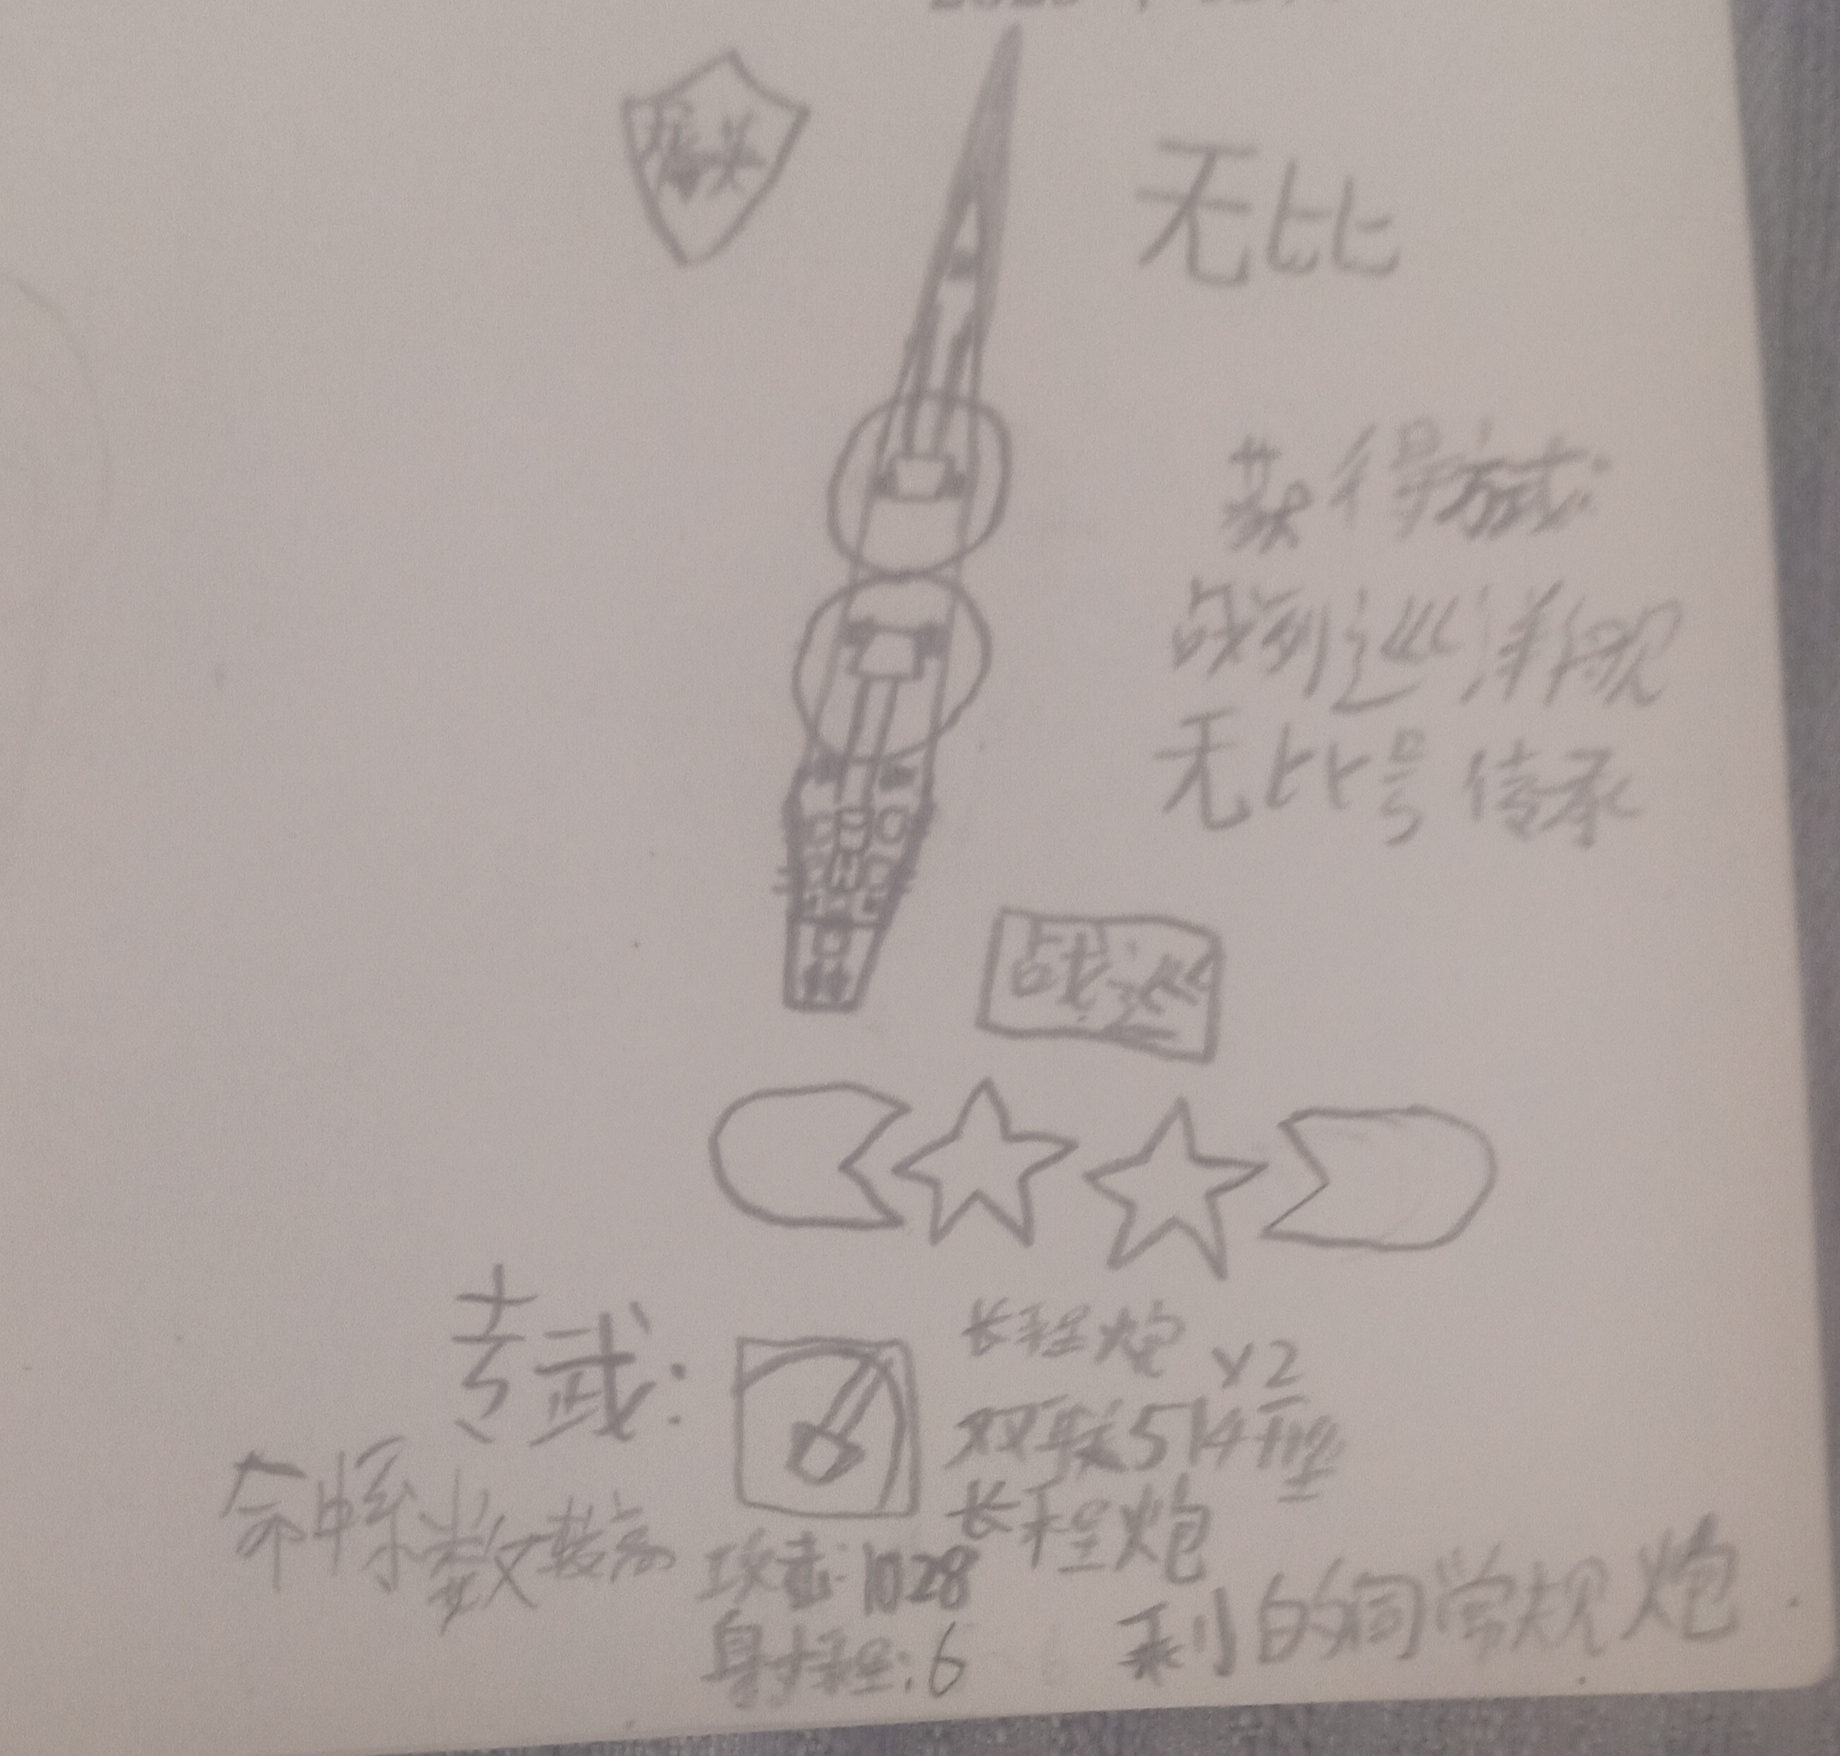 无比
获得方式:
战列巡洋舰
无比号传承
战巡
专武:
长程炮 x2
双联514型
长程炮
命中系数较高
攻击:1028
射程:6
剩的同常规炮